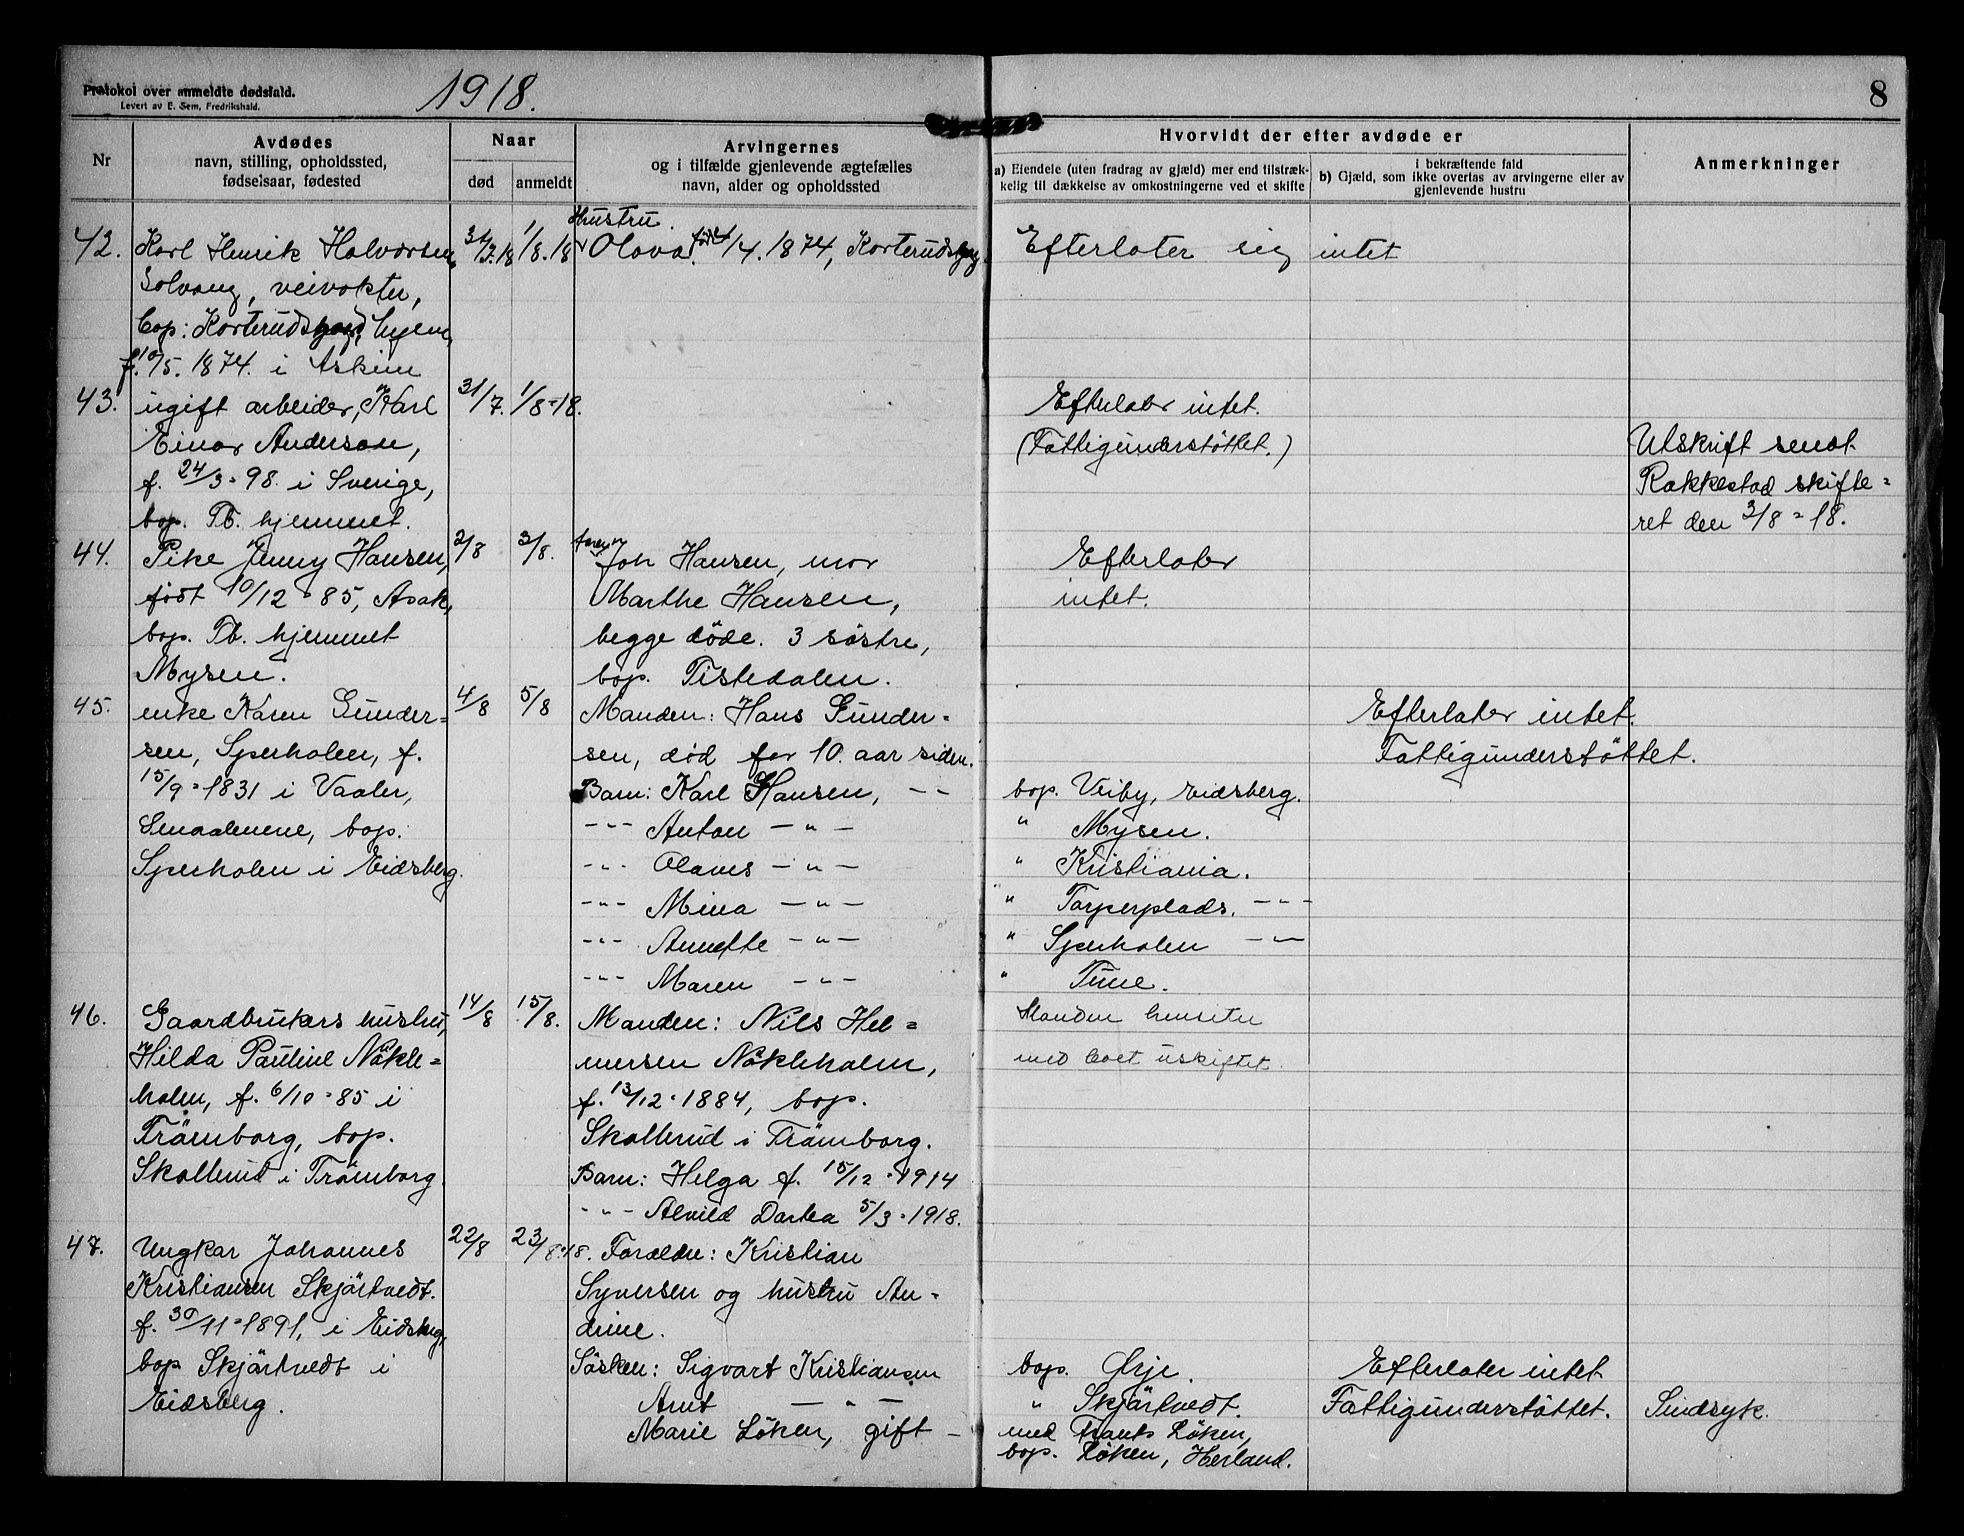 Protokol over anmeldte dødsfald.
Levert av E. Sem, Fredrikshald.
1918.
8
Nr
Avdødes
navn, stilling, opholdssted,
fødselsaar, fødested
Naar
død
anmeldt
Arvingernes
og i tilfælde gjenlevende ægtefælles
navn, alder og opholdssted
Hvorvidt der efter avdøde er
a) Eiendele (uten fradrag av gjæld) mer end tilstræk-
kelig til dækkelse av omkostningerne ved et skifte
i bekræftende fald
b) Gjæld, som ikke overtas av arvingerne eller av
gjenlevende hustru
Anmerkninger
42.
Karl Henrik Halvorsen
Solvang, veivokter,
bop: Korterudshaug, Mysen,
f. 10/5. 1874. i Askim
31/7.18
1/8.18
Hustru
Olava. født /4. 1874, Korterudshaug
Efterlater sig intet
43.
ugift arbeider, Karl
Einar Anderson,
f. 24/3-98. i Sverige,
bop. Tb. hjemmet.
31/7.
1/8-18.
Efterlater intet.
(Fattigunderstøttet.)
Utskrift sendt
Rakkestad skifte=
ret den 3/8-18.
44.
Pike Jenny Hansen,
født 10/12-85, Asak,
bop. Tb. hjemmet
Mysen.
2/8
3/8.
Joh Hansen, mor
Marthe Hansen,
begge døde. 3 søstre,
bop. Tistedalen.
Efterlater
intet.
45.
enke Karen Gunder=
sen, Sperholen, f.
15/9-1831 i Vaaler,
Smaalenene, bop.
Sperholen i Eidsberg.
4/8
5/8
Manden: Hans Gunder-
sen, død for 10 aar siden.
Barn: Karl Hansen, - -
- " - Anton - " -
- " - Olaves - " -
- " - Mina - " -
- " - Annette - " -
- " - Maren - " -
bop. Veiby, Eidsberg.
" Mysen.
" Kristiania.
" Torperplads. - " -
" Sperholen - " -
" Tune.
Efterlater intet.
Fattigunderstøttet.
46.
Gaardbrukers hustru,
Hilda Pauline Nøkle=
holm, f. 6/10-85 i
Trømborg, bop.
Skallerud i Trømborg
14/8
15/8.
Manden: Nils Hel=
mersen Nøkleholm,
f. 13/12-1884, bop.
Skallerud i Trømborg.
Barn: Helga f. 15/12-1914
- " - Alvild Dortea 5/3-1918.
Manden hensitter
med boet uskiftet.
47.
Ungkar Johannes
Kristiansen Skjørtvedt.
f. 30/11-1891, i Eidsberg,
bop Skjørtvedt i
Eidsberg.
22/8
23/8-18.
Forældre: Kristian
Syversen og hustru An-
drine.
Søsken: Sigvart Kristiansen
Arnt - " -
Marie Løken, gift -
bop. Ørje.
" Skjørtvedt.
med Frants Løken,
bop. Løken, Herland.
Efterlater intet
Fattigunderstøttet.
Sindsyk.